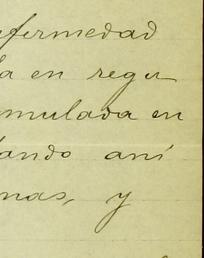 nfermedad
la en regu
mulada en
dando aní
nas, y